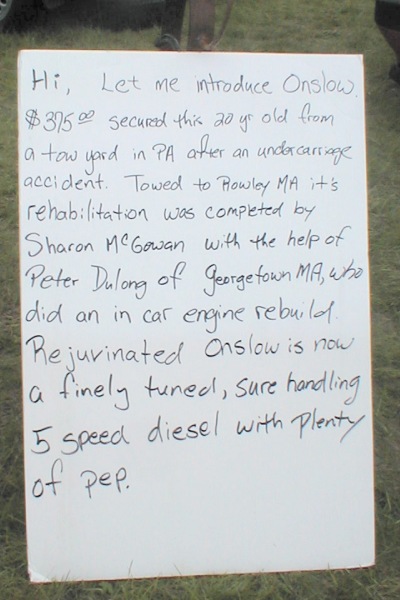 Hi, Let me introduce Onslow.
$375.00 secured this 20 yr old from
a tow yard in PA after an undercarriage
accident. Towed to Rowley MA it's
rehabilitation was completed by
Sharon McGowan with the help of
Peter Dulong of Georgetown MA, who
did an in car engine rebuild.
Rejuvinated Onslow is now
a finely tuned, sure handling
5 speed diesel with plenty
of pep.